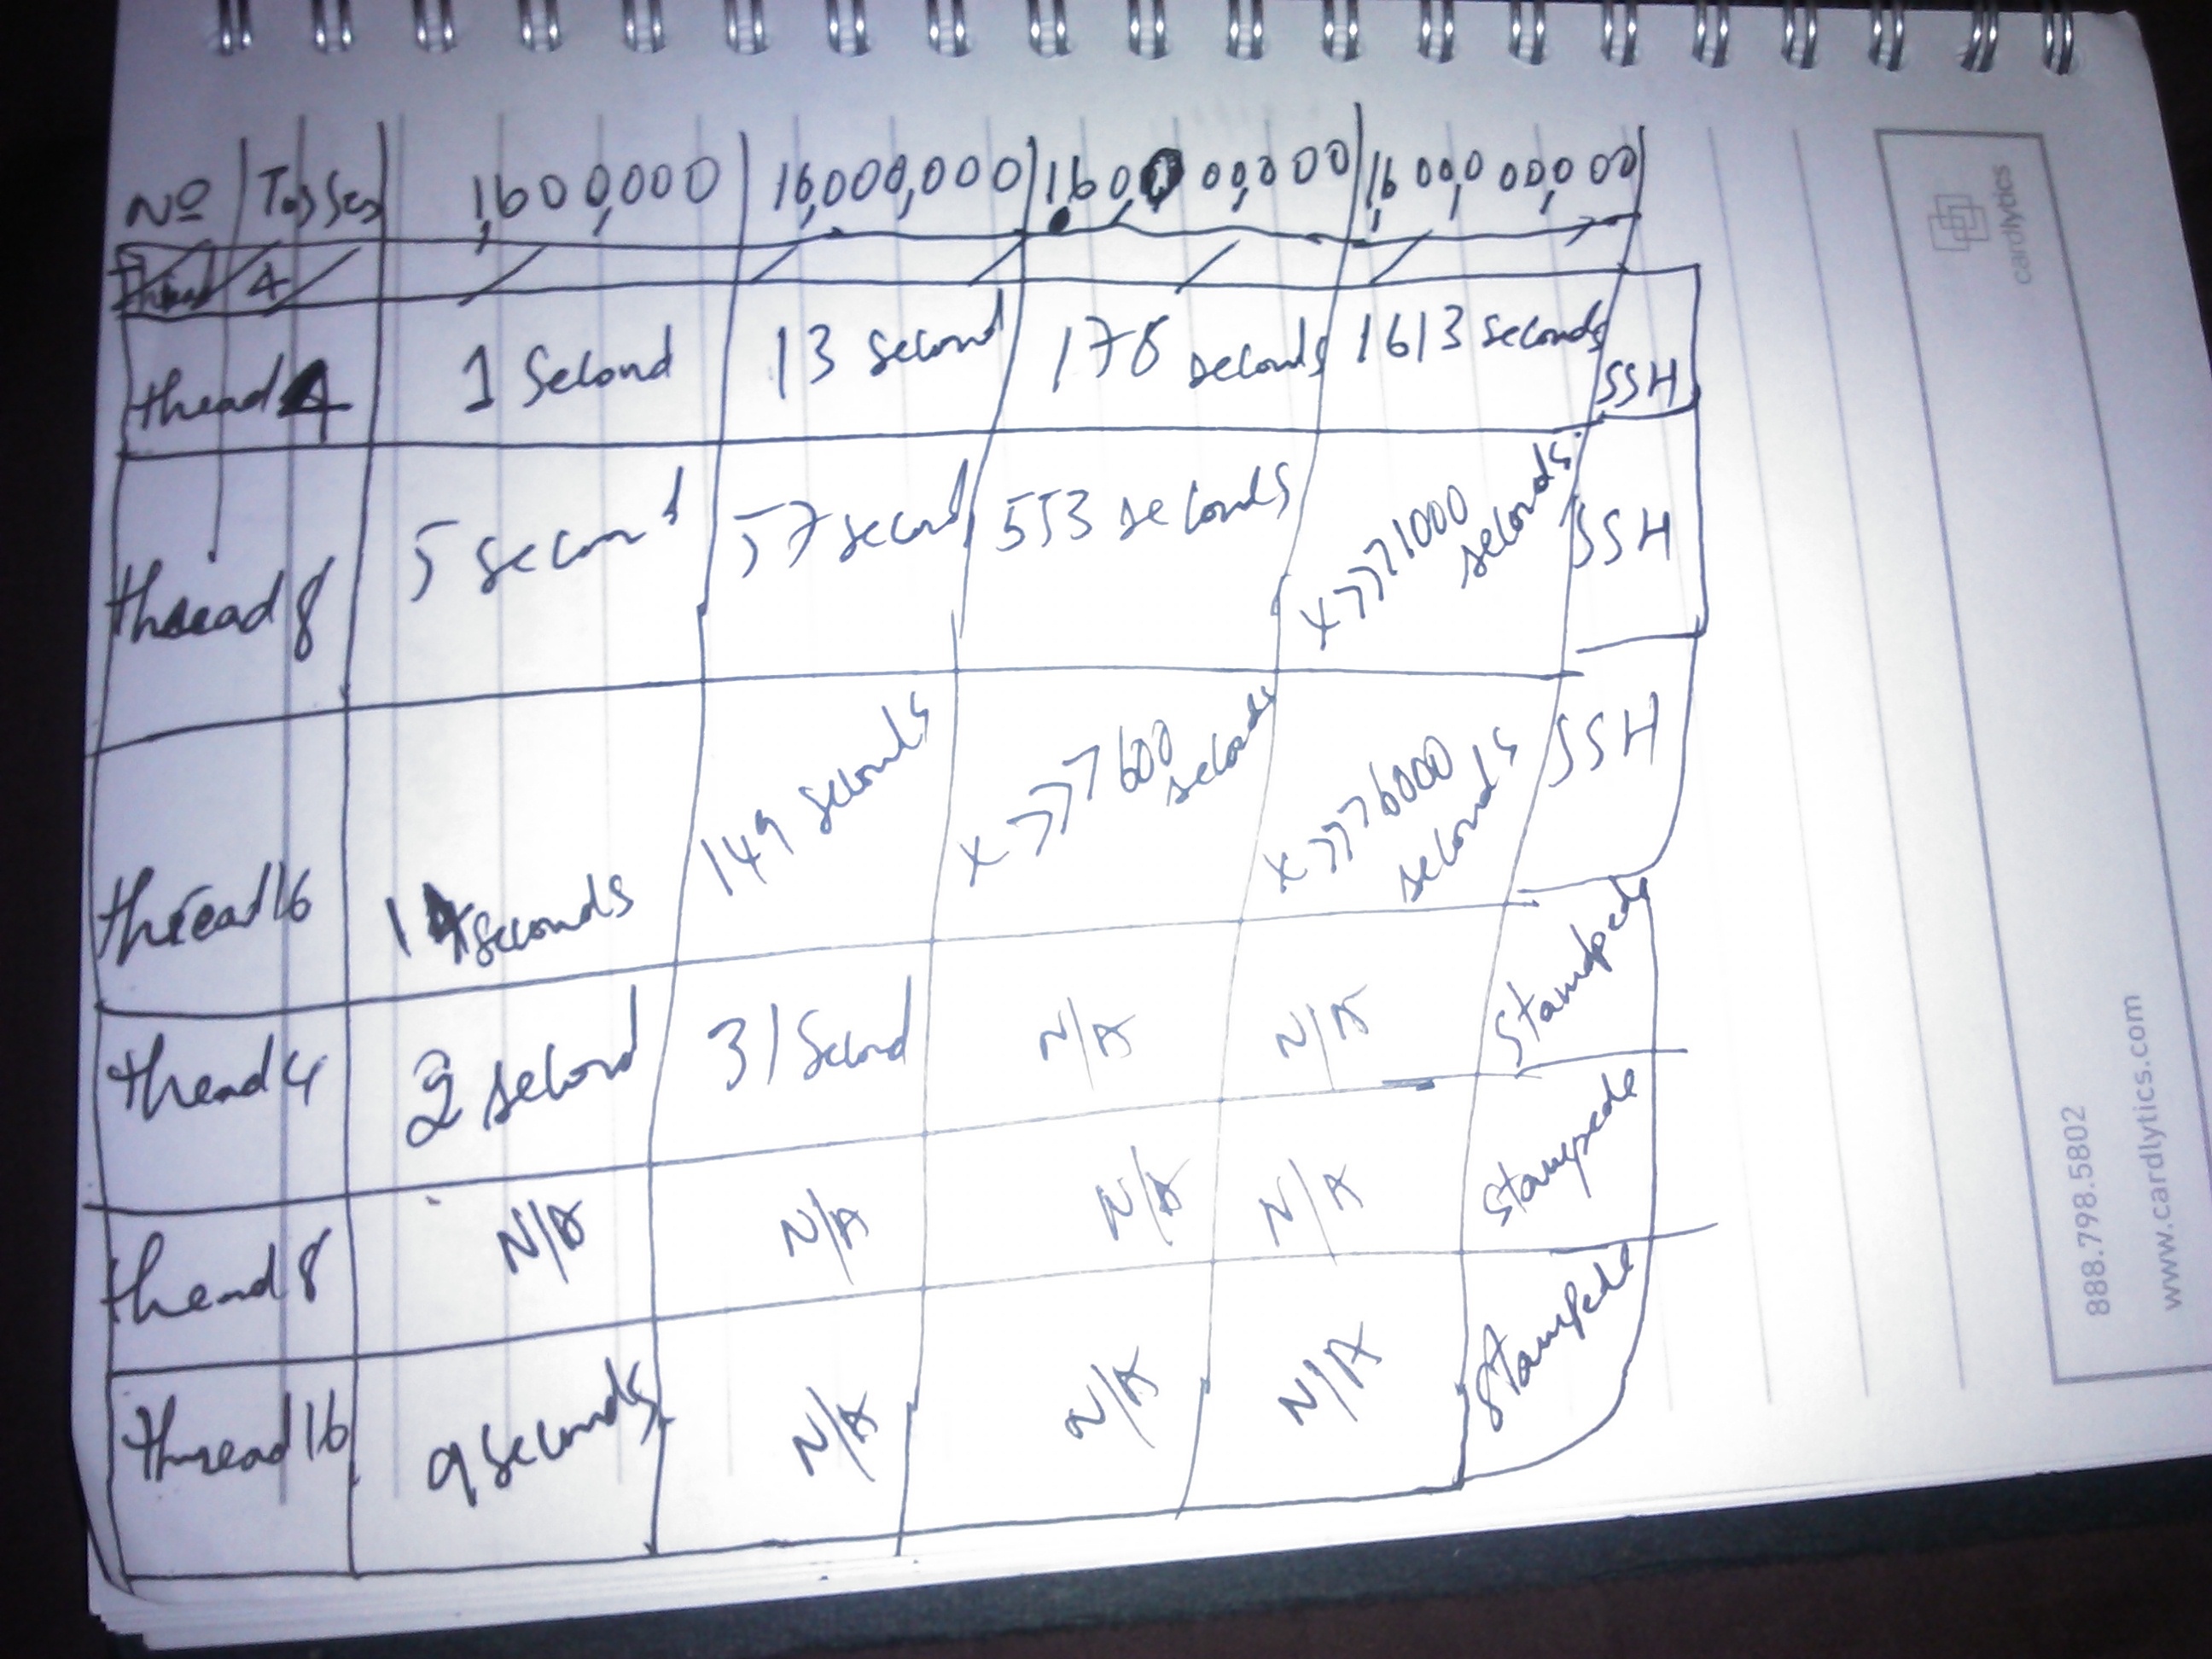 No Tosses 1,600,000 16,000,000 160,000,000 1,600,000,000
thread 4
thead 4 1 Second 13 second 178 seconds 1613 seconds SSH
thread 8 5 second 57 second 553 seconds x>>>1000 seconds SSH
thread 16 14 seconds 149 seconds x>>>600 seconds x>>>6000 seconds SSH
thead 4 2 second 31 Second N/A N/A Stampede
thead 8 N/A N/A N/A N/A Stampede
thread 16 9 seconds N/A N/A N/A Stampede
cardlytics
888.798.5802
www.cardlytics.com